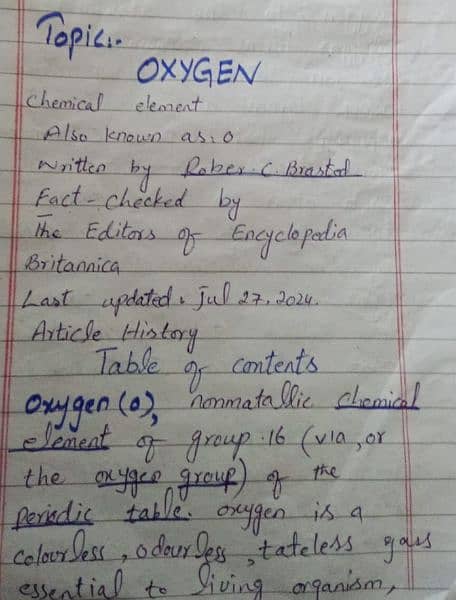 Topic:-
OXYGEN
chemical element
Also known as: O
Written by Rober. C. Brasted
Fact-checked by
The Editors of Encyclopedia
Britannica
Last updated: jul 27, 2024.
Article History
Table of contents
Oxygen (o), nonmatallic chemical
element of group 16 (vIa, or
the oxygen group) of the
periodic table. oxygen is a
colourless, odourless, tateless gass
essential to living organism,